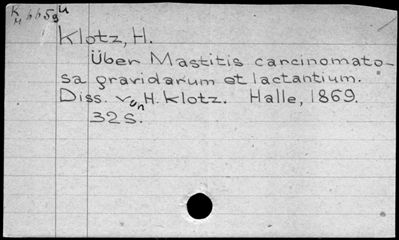 Klotz, H.
Über Mastitis carcinomato-
sa gravidarum et lactantium.
Diss. von H. Klotz. Halle, 1869.
32 S.